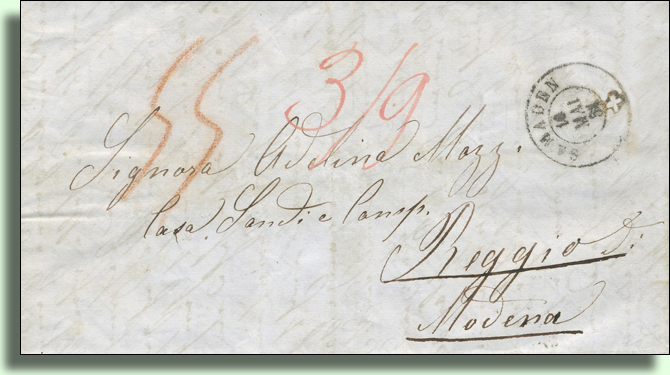 55
3/9
SAMADEN
MAI
Signora Adelina Mazzi
Casa Sandi e Comp.
Reggio di
Modena